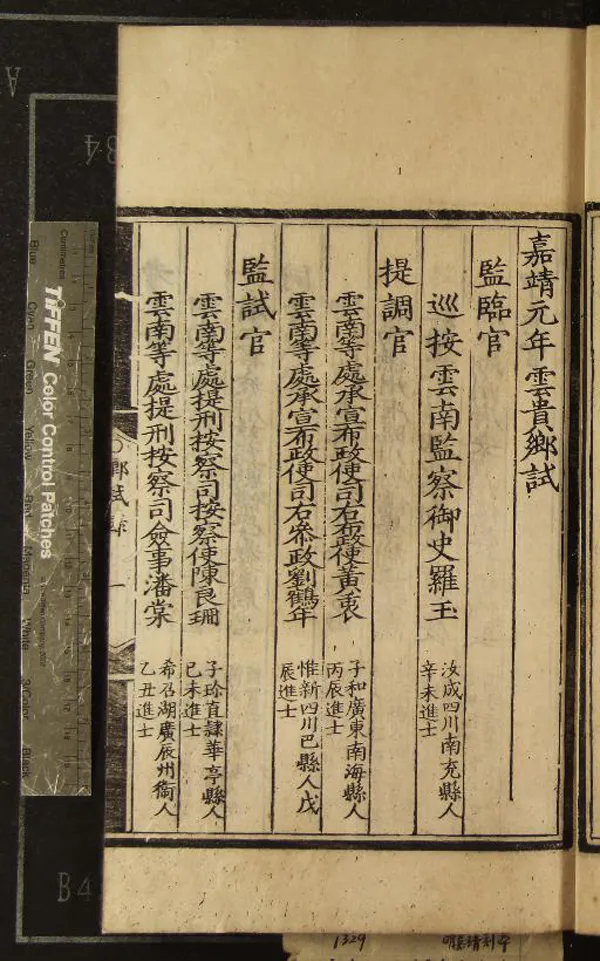 嘉靖元年雲貴鄉試
監臨官
巡按雲南監察御史羅玉
汝成四川南充縣人
辛未進士
提調官
雲南等處承宣布政使司右布政使黃衷
子和廣東南海縣人
丙辰進士
雲南等處承宣布政使司右叅政劉鶴年
惟新四川巴縣人戊
辰進士
監試官
雲南等處提刑按察司按察使陳良珊
子珍直隷華亭縣人
己未進士
雲南等處提刑按察司僉事潘棠
希召湖廣辰州衞人
乙丑進士
鄉試錄
一
TIFFEN Color Control Patches
Centimetres
Blue
Cyan
Green
Yellow
Red
Magenta
White
3/Color
Black
A
B4
B4
1329